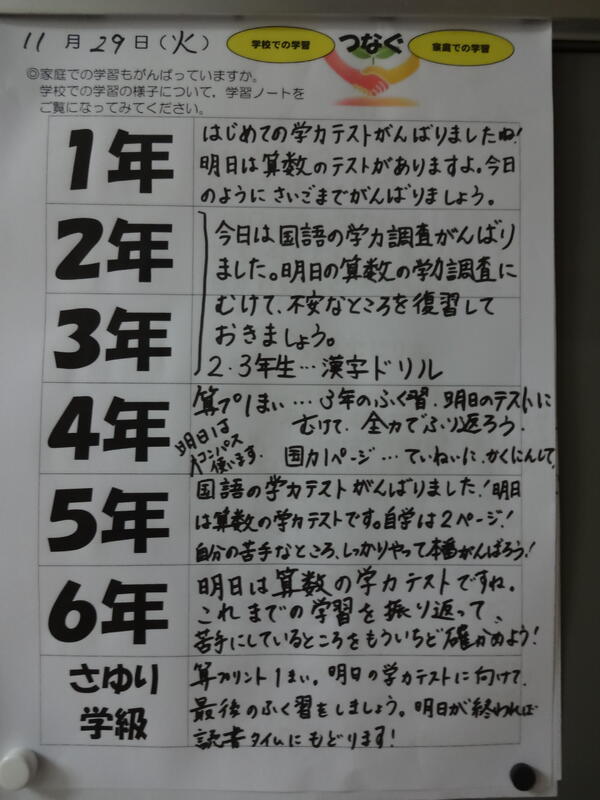 11月29日(火) 学校での学習 つなぐ 家庭での学習
◎家庭での学習もがんばっていますか。
学校での学習の様子について、学習ノートを
ご覧になってみてください。
1年
はじめての学力テストがんばりましたね!
明日は算数のテストがありますよ。今日
のようにさいごまでがんばりましょう。
2年
3年
今日は国語の学力調査がんばり
ました。明日の算数の学力調査に
むけて、不安なところを復習して
おきましょう。
2.3年生…漢字ドリル
4年
算プ1まい…3年のふく習.明日のテストに
むけて、全力でふり返ろう.
明日は
コンパス
使います.
国力1ページ…ていねいに、かくにんして
5年
国語の学力テストがんばりました!明日
は算数の学力テストです。自学は2ページ!
自分の苦手なところ、しっかりやって本番がんばろう!
6年
明日は算数の学力テストですね。
これまでの学習を振り返って、
苦手にしているところをもういちど確かめよう!
さゆり
学級
算プリント1まい。明日の学力テストに向けて、
最後のふく習をしましょう。明日が終われば
読書タイムにもどります!